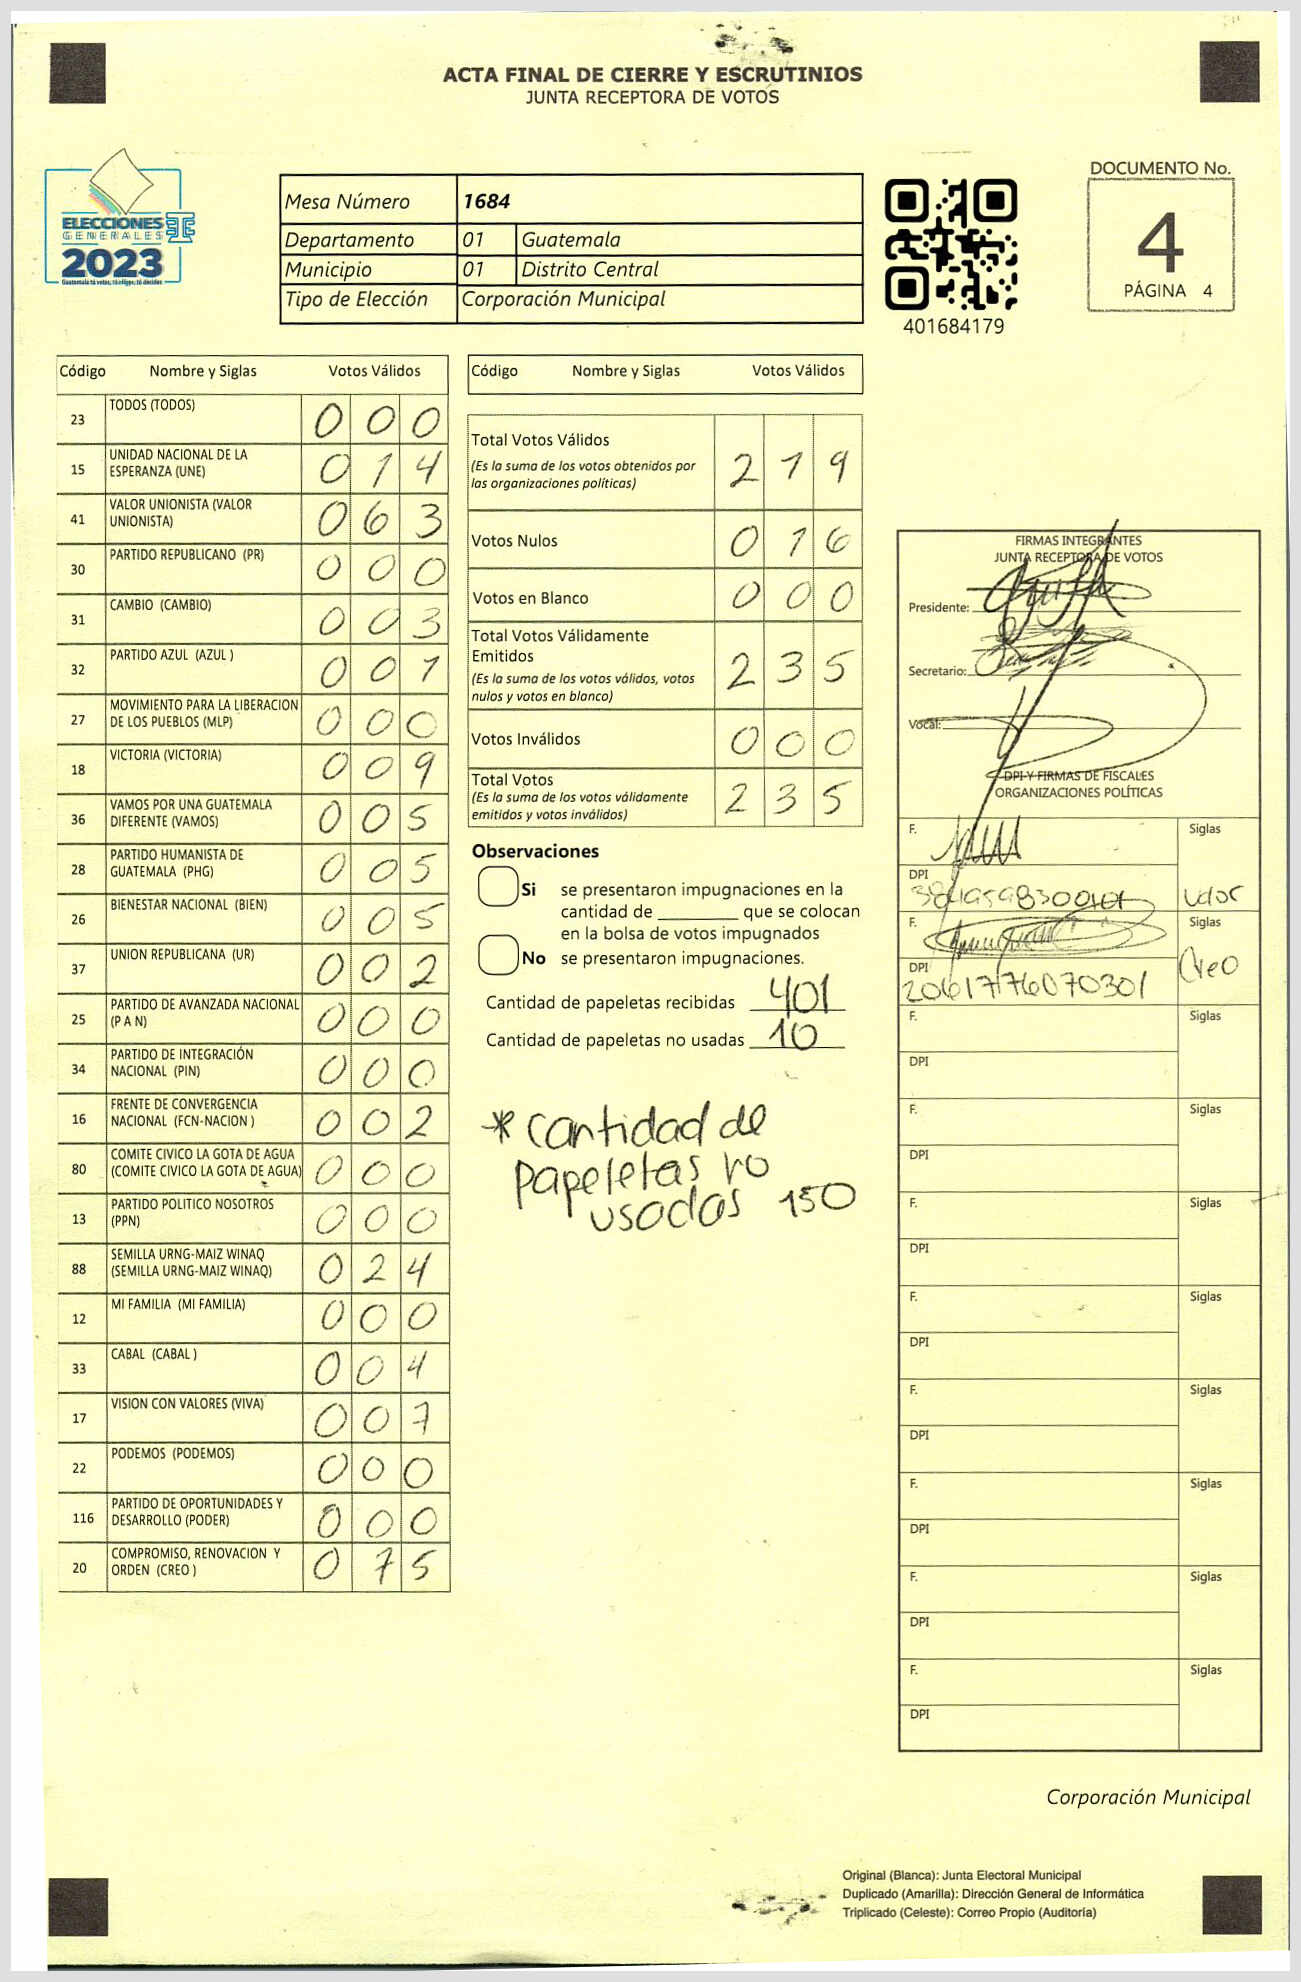 ACTA FINAL DE CIERRE Y ESCRUTINIOS
JUNTA RECEPTORA DE VOTOS
ELECCIONES
GENERALES
2023
Guatemala tú votas, tú eliges, tú decides
Mesa Número 1684
Departamento 01 Guatemala
Municipio 01 Distrito Central
Tipo de Elección Corporación Municipal
401684179
DOCUMENTO No.
4
PÁGINA 4
Código Nombre y Siglas Votos Válidos
23 TODOS (TODOS) 0 0 0
15 UNIDAD NACIONAL DE LA
ESPERANZA (UNE) 0 1 4
41 VALOR UNIONISTA (VALOR
UNIONISTA) 0 6 3
30 PARTIDO REPUBLICANO (PR) 0 0 0
31 CAMBIO (CAMBIO) 0 0 3
32 PARTIDO AZUL (AZUL ) 0 0 1
27 MOVIMIENTO PARA LA LIBERACION
DE LOS PUEBLOS (MLP) 0 0 0
18 VICTORIA (VICTORIA) 0 0 9
36 VAMOS POR UNA GUATEMALA
DIFERENTE (VAMOS) 0 0 5
28 PARTIDO HUMANISTA DE
GUATEMALA (PHG) 0 0 5
26 BIENESTAR NACIONAL (BIEN) 0 0 5
37 UNION REPUBLICANA (UR) 0 0 2
25 PARTIDO DE AVANZADA NACIONAL
(P A N) 0 0 0
34 PARTIDO DE INTEGRACIÓN
NACIONAL (PIN) 0 0 0
16 FRENTE DE CONVERGENCIA
NACIONAL (FCN-NACION ) 0 0 2
80 COMITE CIVICO LA GOTA DE AGUA
(COMITE CIVICO LA GOTA DE AGUA) 0 0 0
13 PARTIDO POLITICO NOSOTROS
(PPN) 0 0 0
88 SEMILLA URNG-MAIZ WINAQ
(SEMILLA URNG-MAIZ WINAQ) 0 2 4
12 MI FAMILIA (MI FAMILIA) 0 0 0
33 CABAL (CABAL ) 0 0 4
17 VISION CON VALORES (VIVA) 0 0 7
22 PODEMOS (PODEMOS) 0 0 0
116 PARTIDO DE OPORTUNIDADES Y
DESARROLLO (PODER) 0 0 0
20 COMPROMISO, RENOVACION Y
ORDEN (CREO ) 0 7 5
Código Nombre y Siglas Votos Válidos
Total Votos Válidos 2 1 9
(Es la suma de los votos obtenidos por
las organizaciones políticas)
Votos Nulos 0 1 6
Votos en Blanco 0 0 0
Total Votos Válidamente
Emitidos 2 3 5
(Es la suma de los votos válidos, votos
nulos y votos en blanco)
Votos Inválidos 0 0 0
Total Votos 2 3 5
(Es la suma de los votos válidamente
emitidos y votos inválidos)
Observaciones
Si se presentaron impugnaciones en la
cantidad de ________ que se colocan
en la bolsa de votos impugnados
No se presentaron impugnaciones.
Cantidad de papeletas recibidas 401
Cantidad de papeletas no usadas 10
* cantidad de
papeletas no
usadas 150
FIRMAS INTEGRANTES
JUNTA RECEPTORA DE VOTOS
Presidente:
Secretario:
Vocal:
DPI Y FIRMAS DE FISCALES
ORGANIZACIONES POLÍTICAS
F. Siglas
DPI
Valor
F. Siglas
Creo
DPI
F. Siglas
DPI
F. Siglas
DPI
F. Siglas
DPI
F. Siglas
DPI
F. Siglas
DPI
F. Siglas
DPI
F. Siglas
DPI
F. Siglas
DPI
Corporación Municipal
Original (Blanca): Junta Electoral Municipal
Duplicado (Amarilla): Dirección General de Informática
Triplicado (Celeste): Correo Propio (Auditoría)